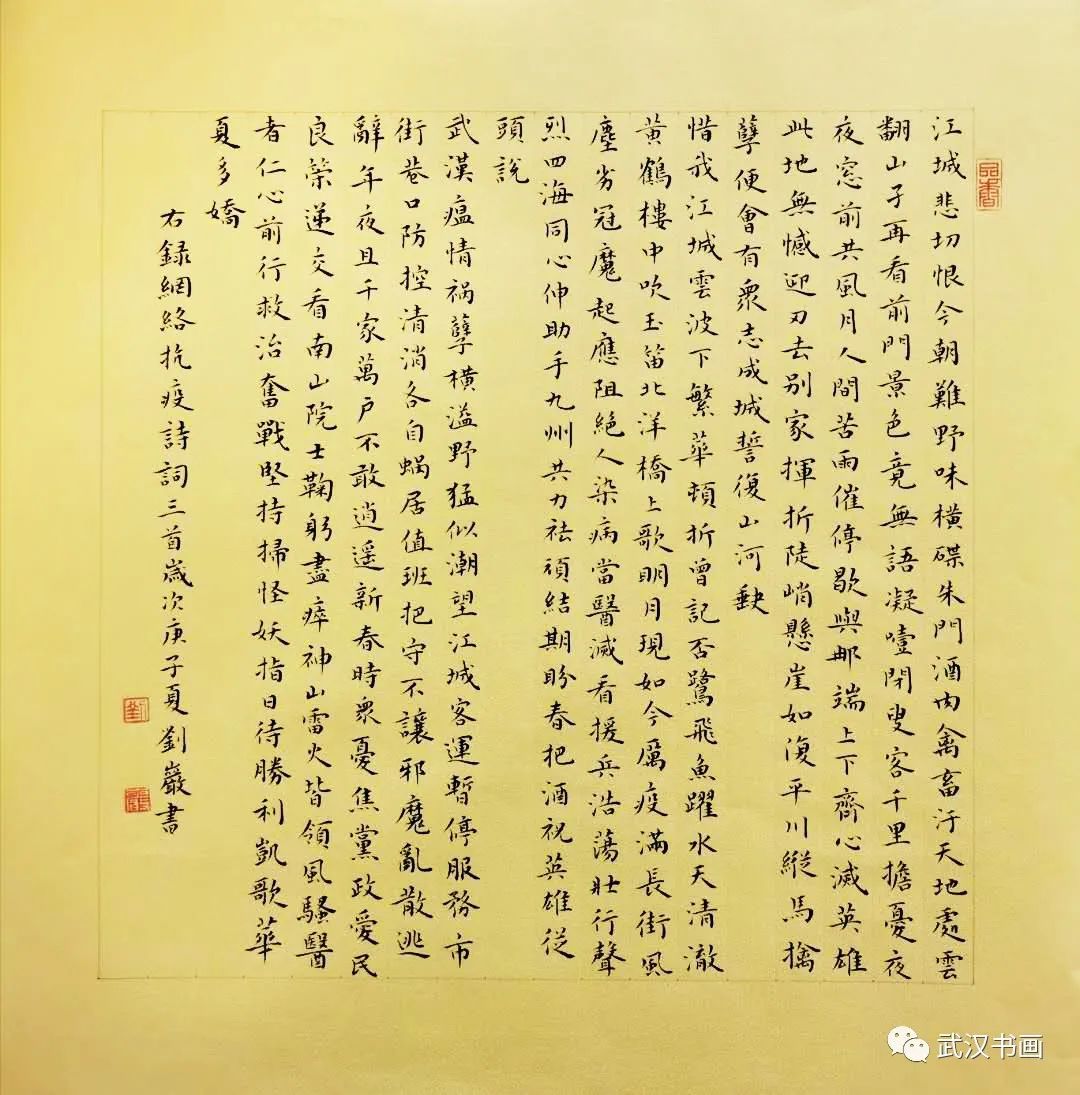 江城悲切恨今朝難野味橫碟朱門酒肉禽畜汙天地處雲
翻山子再看前門景色竟無語凝噎閉叟客千里擔憂夜
夜窓前共風月人間苦雨催停歇與那端上下齊心滅英雄
此地無憾迎刃去別家揮折陡峭懸崖如復平川縱馬擒
孽便會有衆志成城誓復山河缺
惜我江城雲波下繁華頓折曾記否鷺飛魚躍水天清澈
黃鶴樓中吹玉笛北洋橋上歌明月現如今厲疫滿長街風
塵劣冠魔起應阻絕人染病當醫滅看援兵浩蕩壯行聲
烈四海同心伸助手九州共力祛頑結期盼春把酒祝英雄從
頭說
武漢瘟情祸孽橫溢野猛似潮望江城客運暫停服務市
街巷口防控清消各自蝸居值班把守不讓邪魔亂散逃
辭年夜且千家萬戶不敢逍遥新春時衆憂焦黨政愛民
良策递交看南山院士鞠躬盡瘁神山雷火皆領風騷醫
者仁心前行救治奮戰堅持掃怪妖指日待勝利凱歌華
夏多嬌
右録網絡抗疫詩詞三首歲次庚子夏劉巖書
武汉书画